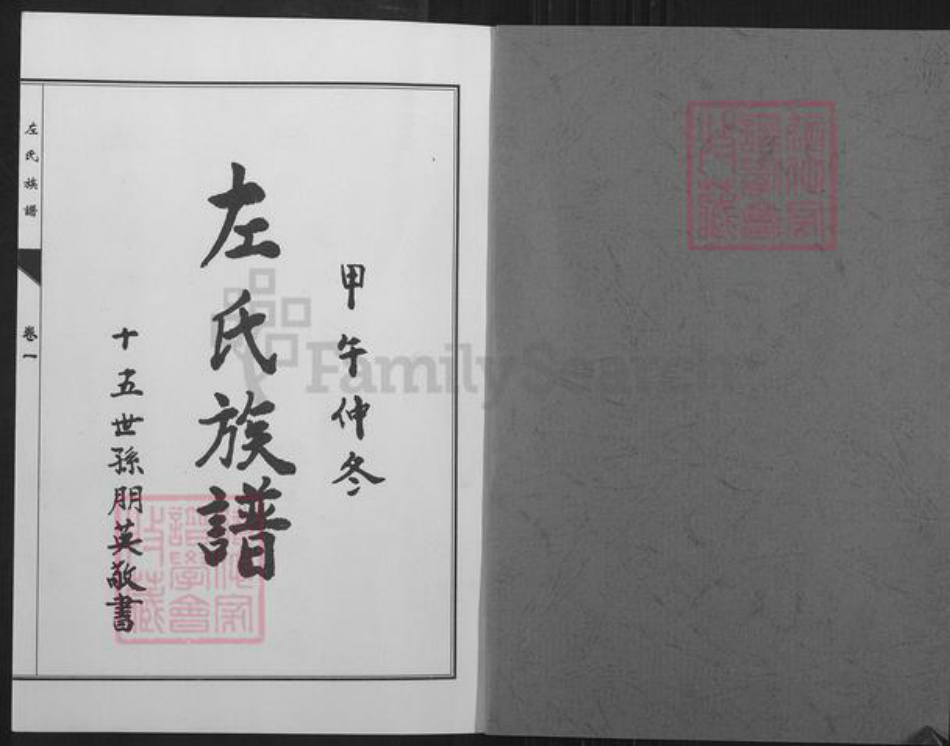 甲午仲冬
左氏族譜
十五世孫朋英敬書
左氏族譜
卷一
FamilySearch